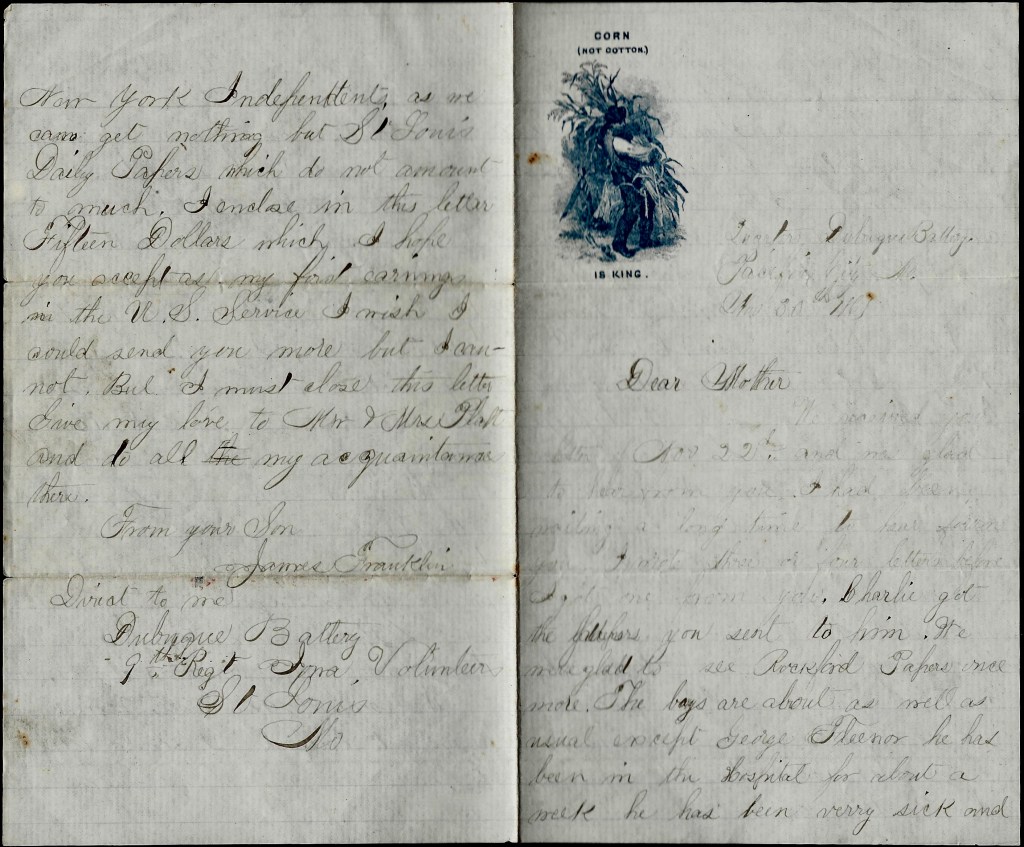 New York Independent, as we
can get nothing but St Louis
Daily Papers which do not amount
to much. I enclose in this letter
Fifteen Dollars which I hope
you accept as my first earnings
in the U.S. Service I wish I
could send you more but I can-
not. But I must close this letter
Give my love to Mr & Mrs
and to all the my acquaintances
there.
From your Son
James Franklin
Direct to me
Dubuque Battery
9th Regit Iowa Volunteers
St Louis
Mo
CORN
(NOT COTTON.)
IS KING.
Dubuque Battery
Pacific City Mo.
Dear Mother
I received your
Nov 22nd. and was glad
to hear from you. I had been
waiting a long time to hear from
you I wrote three or four letters before
I got one from you. Charlie got
the you sent to him. We
were glad to see Rockford Papers once
more. The boys are about as well as
usual except George Fleenor he has
been in the Hospital for about a
week he has been verry sick and